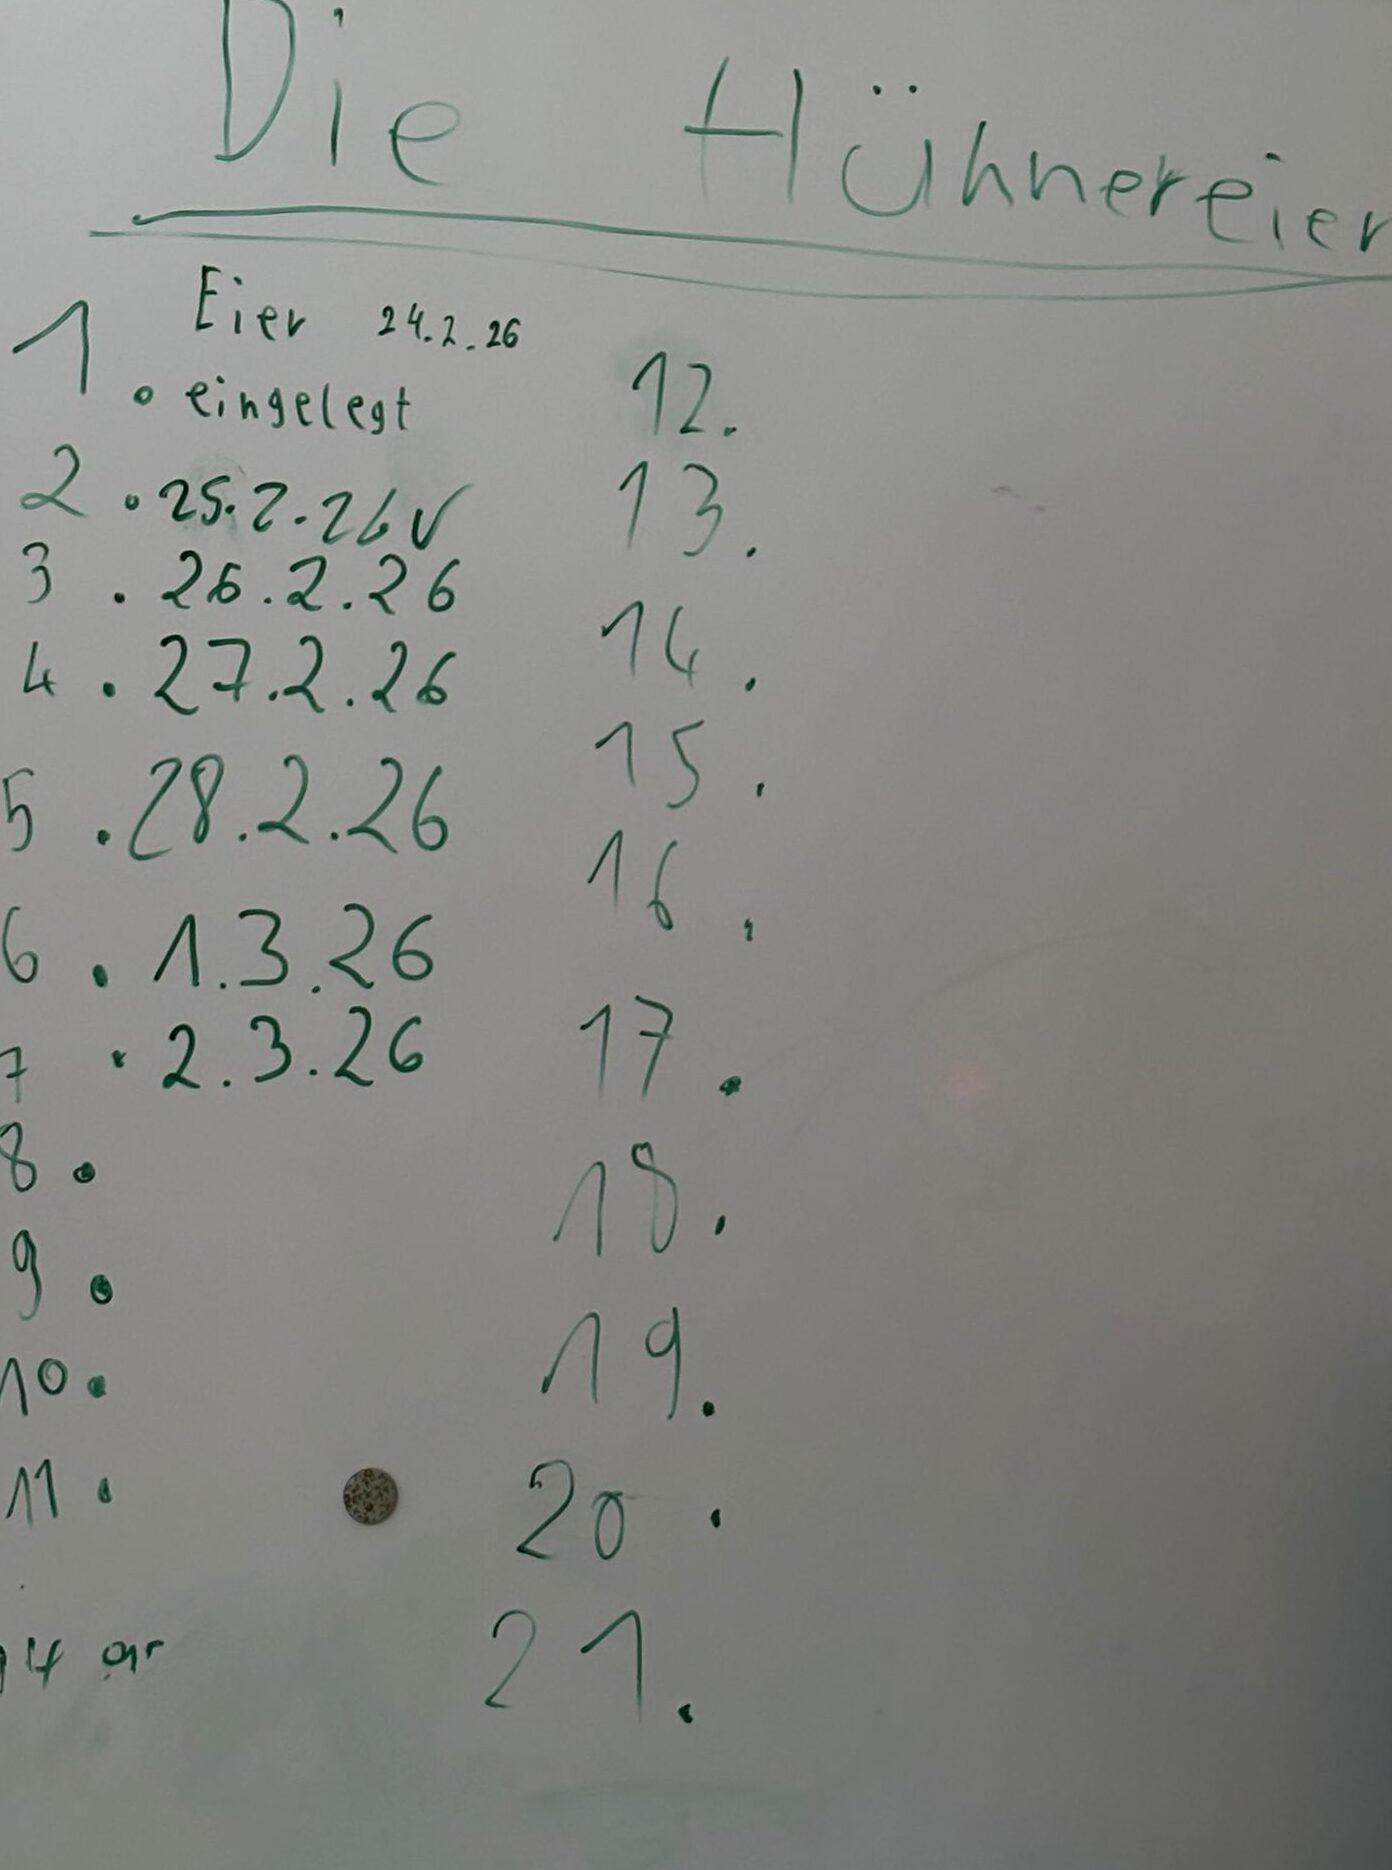 Die Hühnereier
1. Eier 24.2.26
eingelegt
2. 25.2.26 √
3. 26.2.26
4. 27.2.26
5. 28.2.26
6. 1.3.26
7. 2.3.26
8.
9.
10.
11.
12.
13.
14.
15.
16.
17.
18.
19.
20.
21.